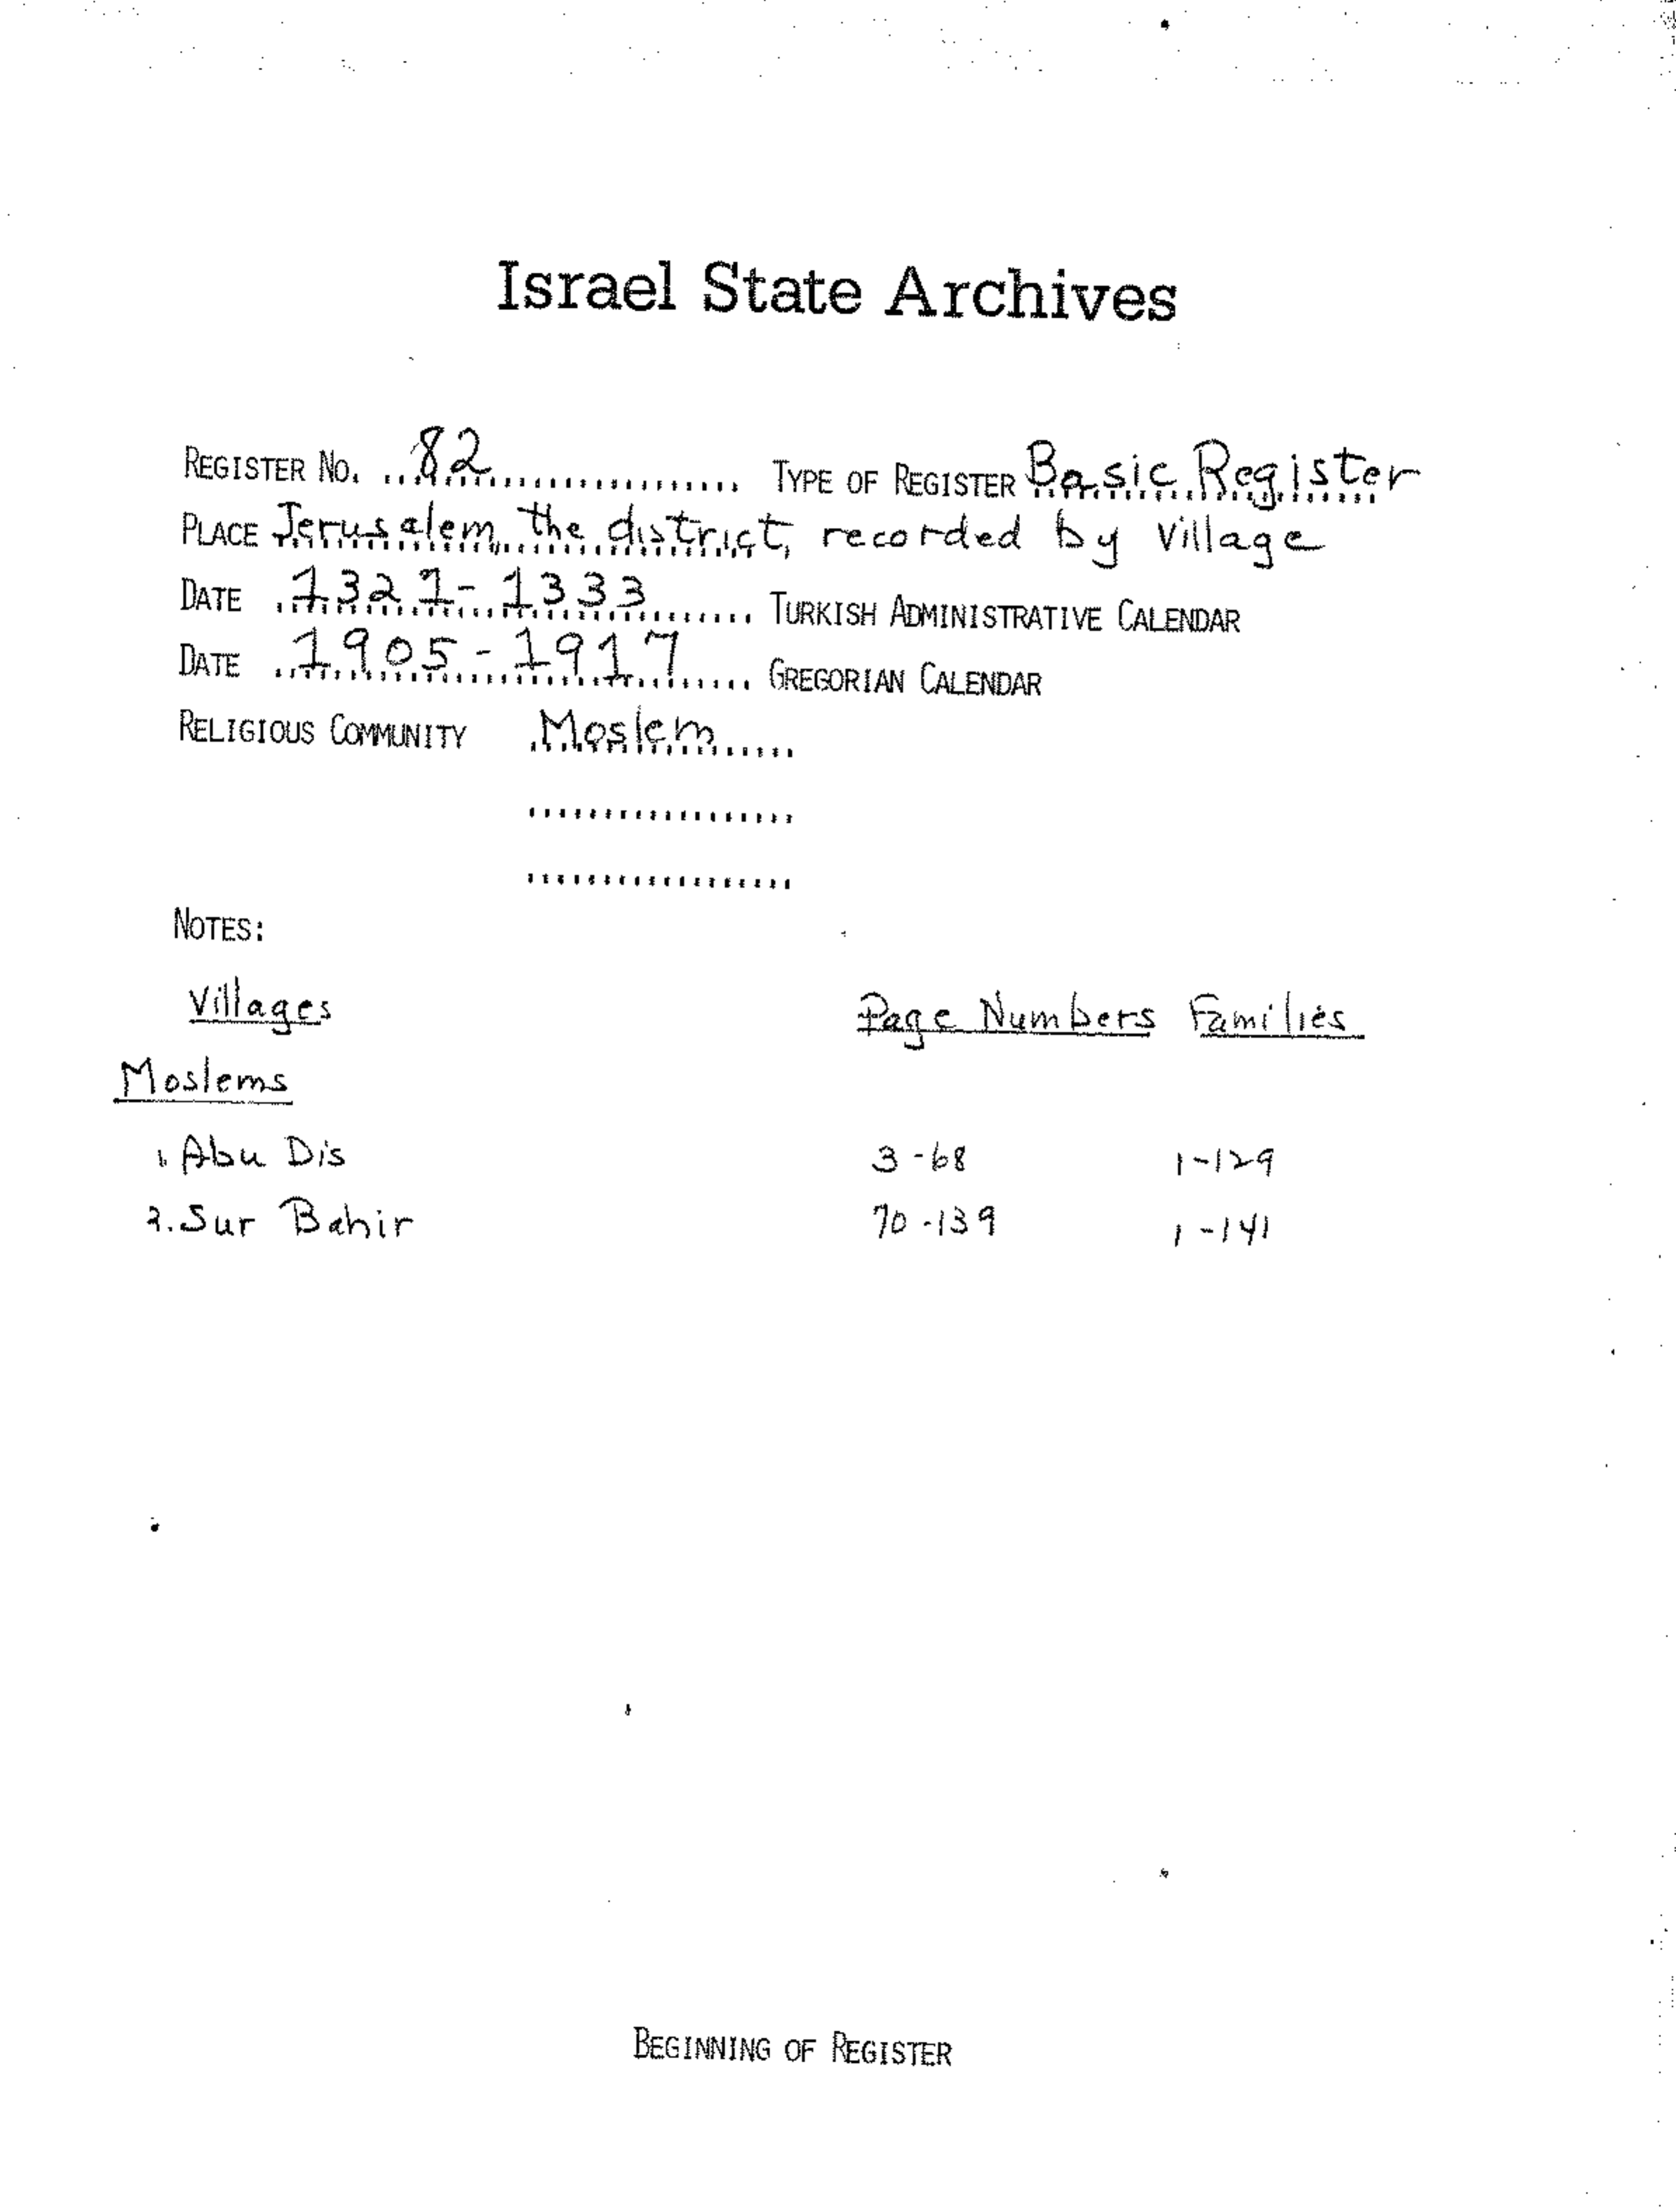 Israel State Archives
REGISTER NO. 82 TYPE OF REGISTER Basic Register
PLACE Jerusalem, the district, recorded by village
DATE 1321-1333 TURKISH ADMINISTRATIVE CALENDAR
DATE 1905-1917 GREGORIAN CALENDAR
RELIGIOUS COMMUNITY Moslem
NOTES:
Villages Page Numbers Families
Moslems
1. Abu Dis 3-68 1-129
2. Sur Bahir 70-139 1-141
BEGINNING OF REGISTER